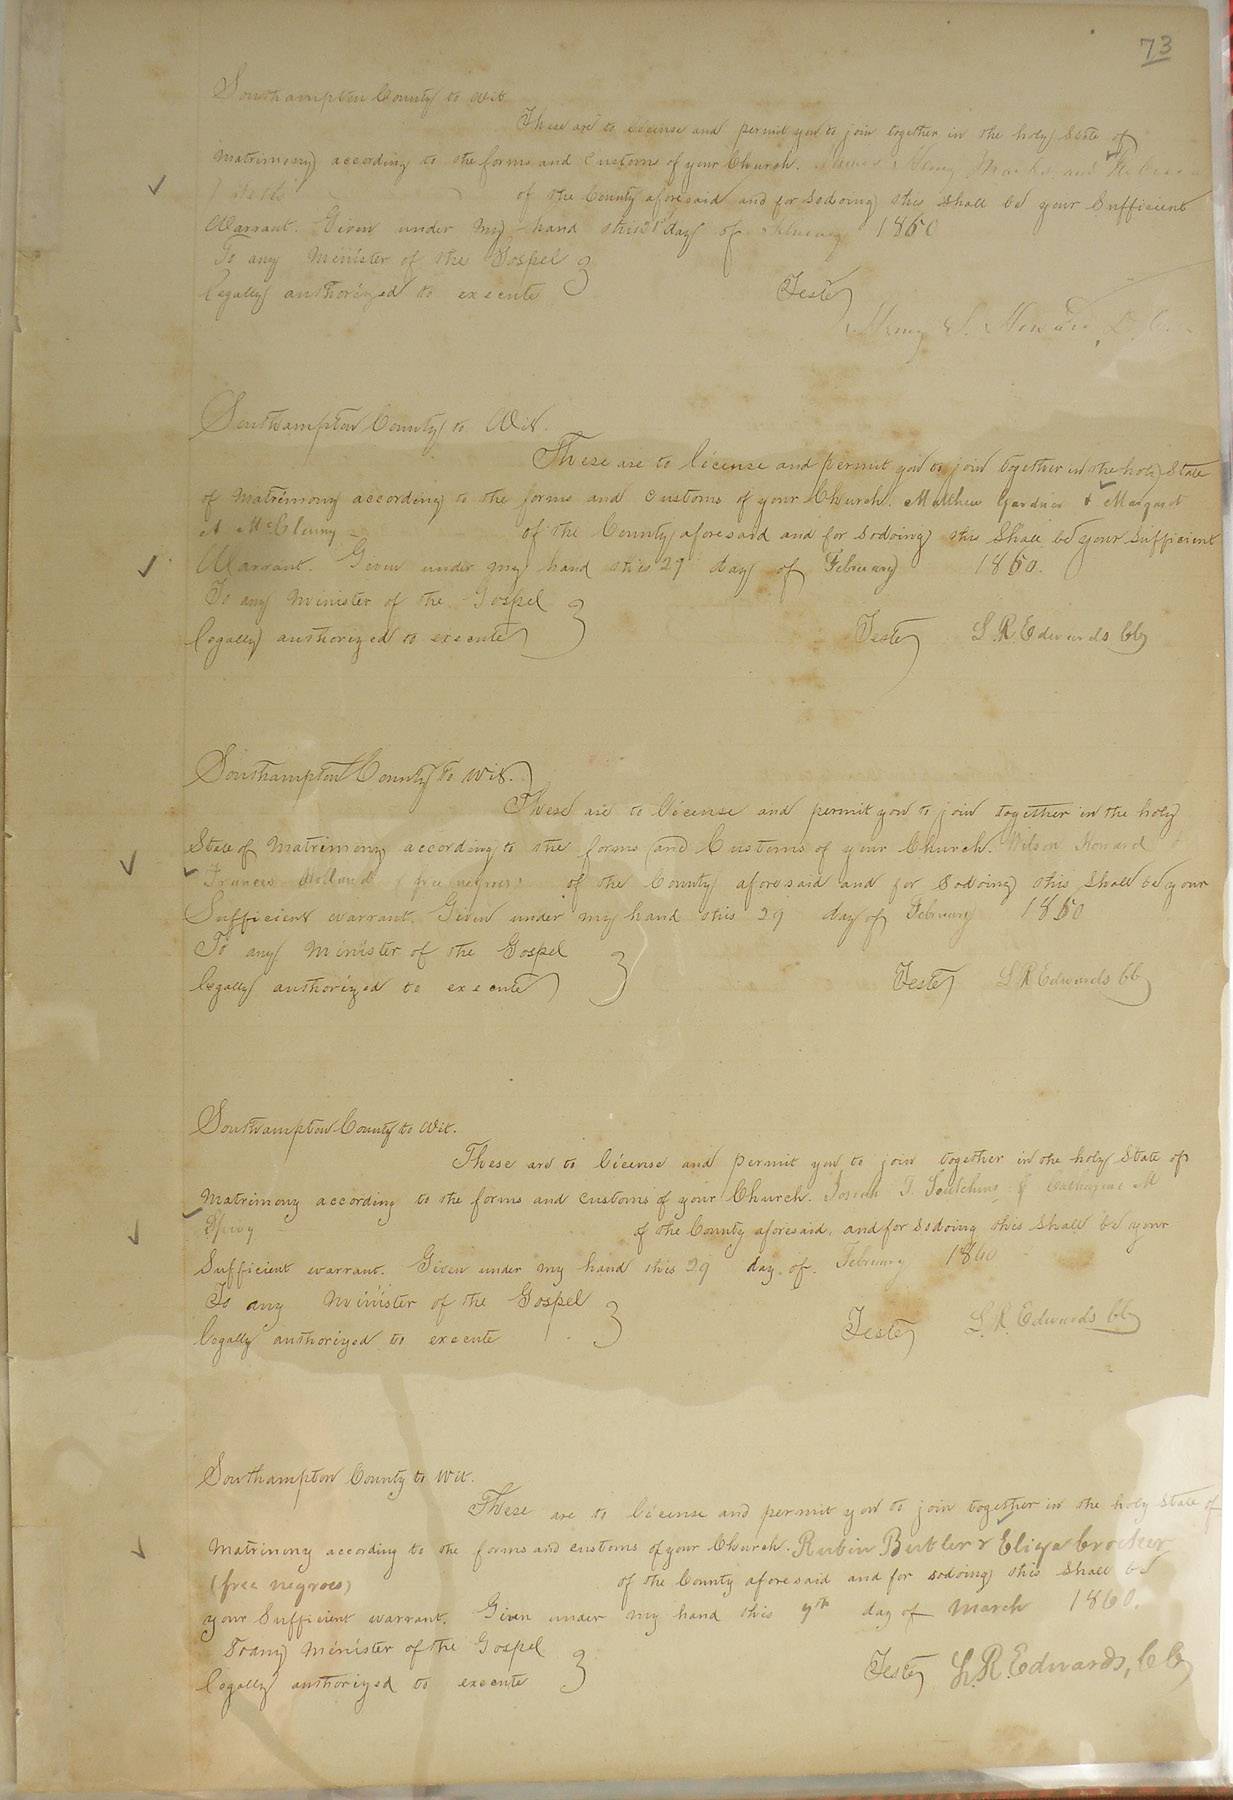 73
Southampton County to wit
These are to license and permit you to join together in the holy State of
Matrimony according to the forms and Customs of your Church. Henry and
of the County aforesaid and for sodoing this shall be your Sufficient
Warrant. Given under my hand this day of February 1860
To any Minister of the Gospel
legally authorized to execute
Teste
Southampton County to Wit.
These are to license and permit you to join together in the holy State
of Matrimony according to the forms and customs of your Church. Matthew Gardner & Margaret
A McClenny of the County aforesaid and for sodoing this Shall be your Sufficient
Warrant. Given under my hand this 29 day of February 1860.
To any Minister of the Gospel
legally authorized to execute
Teste L R Edwards Clk
Southampton County to wit.
These are to license and permit you to join together in the holy
State of Matrimony according to the forms and Customs of your Church. Wilson Howard &
Francis Holland (free negroes) of the County aforesaid and for Sodoing this Shall be your
Sufficient warrant. Given under my hand this 29 day of February 1860
To any Minister of the Gospel
legally authorized to execute
Teste L R Edwards Clk
Southampton County to Wit.
These are to license and permit you to join together in the holy State of
Matrimony according to the forms and customs of your Church. Josiah T & Catharine M
Spivy of the County aforesaid, and for sodoing this Shall be your
Sufficient warrant. Given under my hand this 29 day of February 1860
To any Minister of the Gospel
legally authorized to execute
Teste L. R. Edwards Clk
Southampton County to wit.
These are to license and permit you to join together in the holy State of
Matrimony according to the forms and customs of your Church. Rubin Butler & Eliza Crocker
(free negroes) of the County aforesaid and for sodoing this Shall be
your Sufficient warrant. Given under my hand this 7th day of March 1860.
To any Minister of the Gospel
legally authorized to execute
Teste L. R. Edwards, Clk